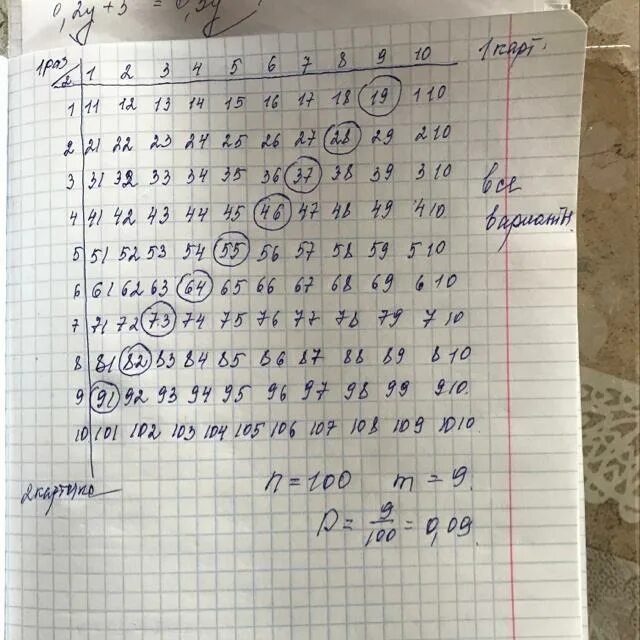 0,2y + 3 = 0,3y
1 раз 1 2 3 4 5 6 7 8 9 10 1 карт.
2
1 11 12 13 14 15 16 17 18 19 1 10
2 21 22 23 24 25 26 27 28 29 2 10
3 31 32 33 34 35 36 37 38 39 3 10 все
4 41 42 43 44 45 46 47 48 49 4 10 варианты
5 51 52 53 54 55 56 57 58 59 5 10
6 61 62 63 64 65 66 67 68 69 6 10
7 71 72 73 74 75 76 77 78 79 7 10
8 81 82 83 84 85 86 87 88 89 8 10
9 91 92 93 94 95 96 97 98 99 9 10.
10 101 102 103 104 105 106 107 108 109 10 10
n = 100 m = 9.
P = 9/100 = 0,09.